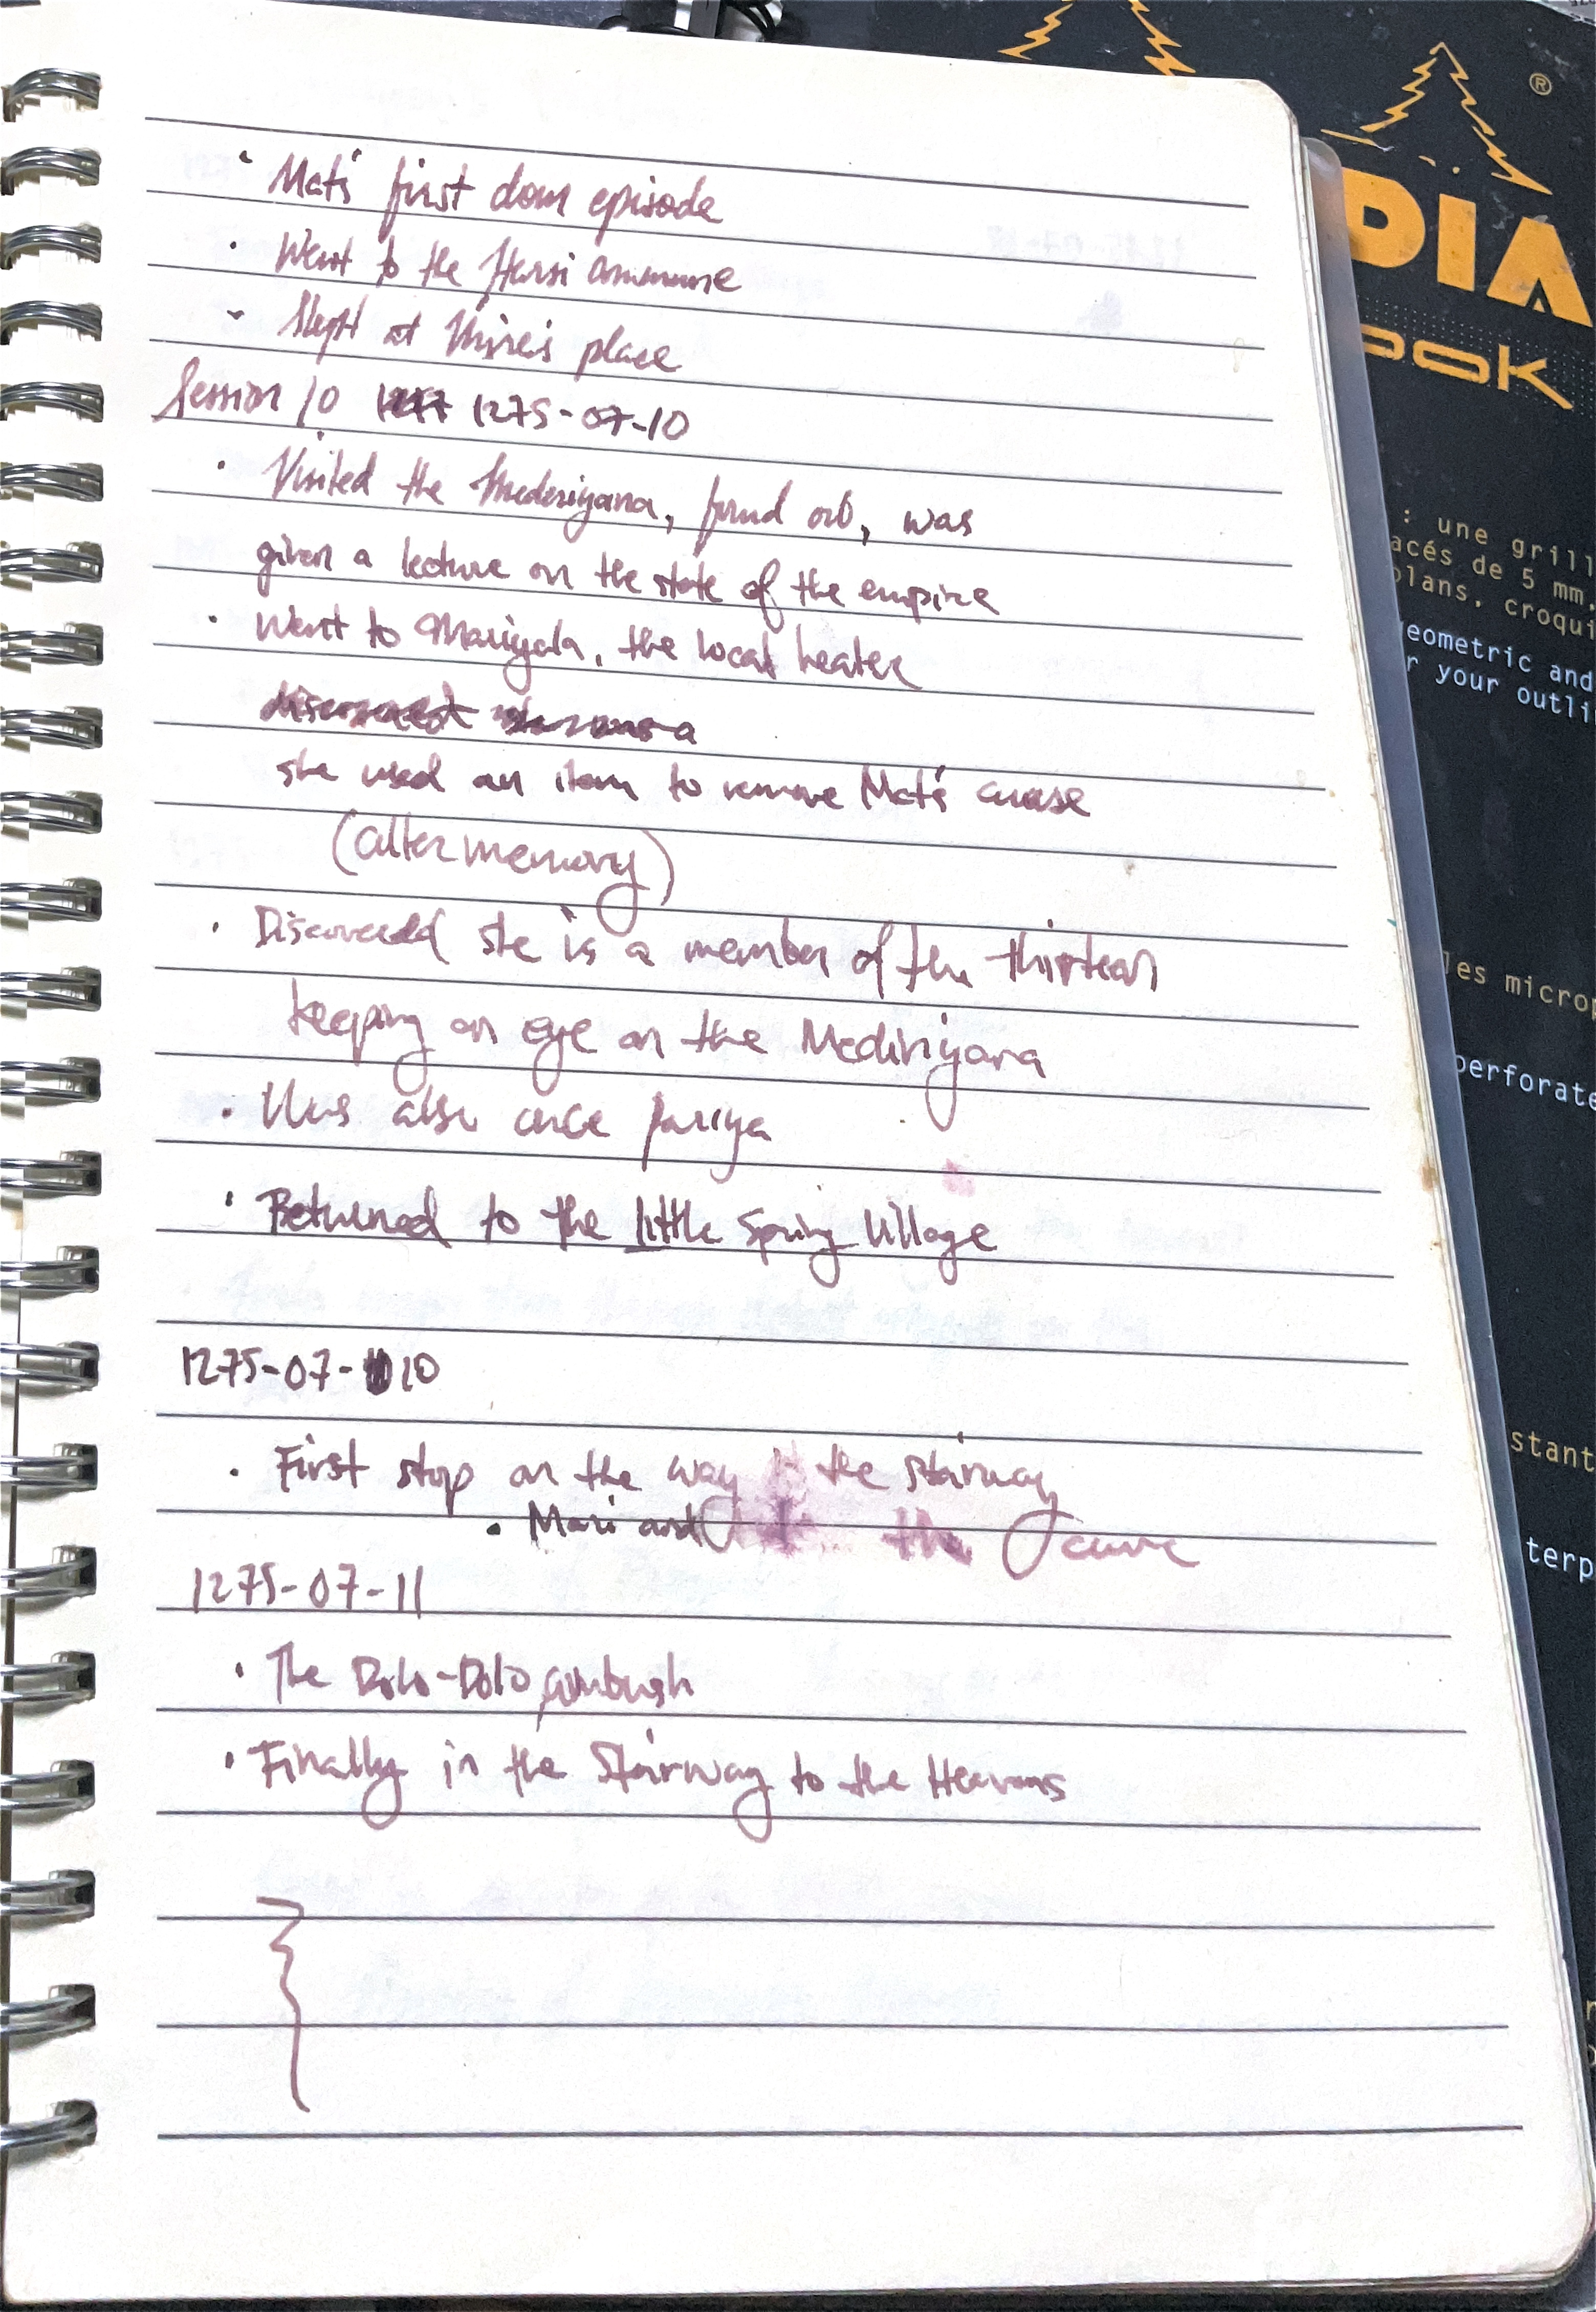 • Mat's first dom episode
• Went to the Hersi commune
• Slept at place
Session 10 1275-07-10
• Visited the Mederiyana, found orb, was
given a lecture on the state of the empire
• Went to Mariyala, the local healer
she used an item to remove Mat's curse
(alter memory)
• Discovered she is a member of the thirteen
keeping an eye on the Mediriyana
• Was also once pariya
• Returned to the little Spring Village
1275-07-10
• First stop on the way the stairway
• Mari and the
1275-07-11
• The Dolo-Dolo ambush
• Finally in the Stairway to the Heavens
®
DIA
OOK
: une grill
acés de 5 mm.
plans, croqui
eometric and
r your outli
les microp
perforate
stant
terp